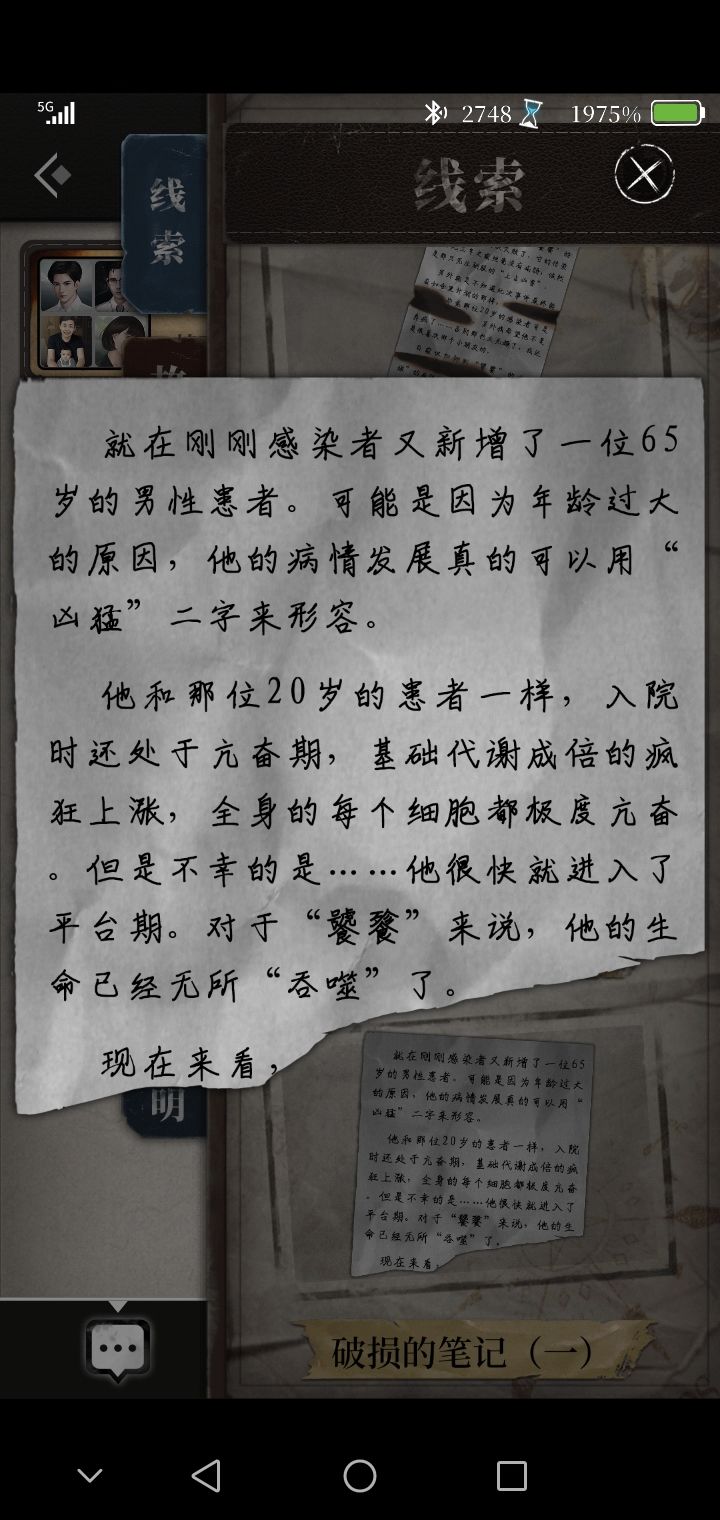 5G
2748
1975%
线索
线
索
就在刚刚感染者又新增了一位65
岁的男性患者。可能是因为年龄过大
的原因，他的病情发展真的可以用“
凶猛”二字来形容。
他和那位20岁的患者一样，入院
时还处于亢奋期，基础代谢成倍的疯
狂上涨，全身的每个细胞都极度亢奋
。但是不幸的是……他很快就进入了
平台期。对于“饕餮”来说，他的生
命已经无所“吞噬”了。
现在来看，
明
就在刚刚感染者又新增了一位65
岁的男性患者。可能是因为年龄过大
的原因，他的病情发展真的可以用“
凶猛”二字来形容。
他和那位20岁的患者一样，入院
时还处于亢奋期，基础代谢成倍的疯
狂上涨，全身的每个细胞都极度亢奋
。但是不幸的是……他很快就进入了
平台期。对于“饕餮”来说，他的生
命已经无所“吞噬”了。
现在来看，
破损的笔记（一）